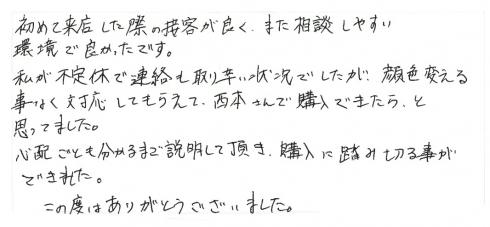 初めて来店した際の接客が良く、また相談しやすい
環境で良かったです。
私が不定休で連絡も取り辛い状況でしたが、顔色変える
事なく対応してもらえて、西本さんで購入できたら、と
思ってました。
心配ごとも分かるまで説明して頂き、購入に踏み切る事が
できました。
この度はありがとうございました。